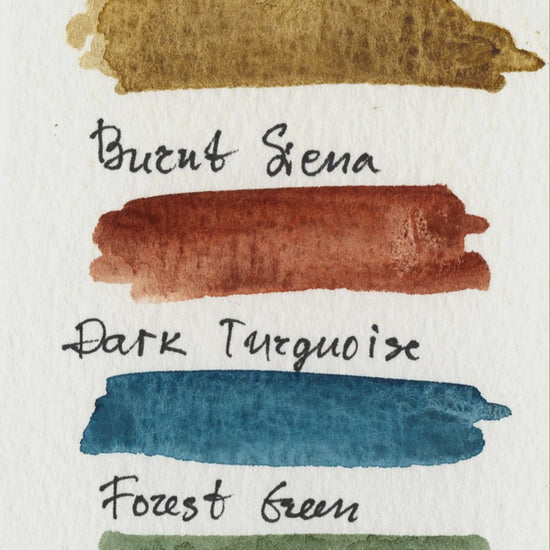 Burnt Siena
Dark Turquoise
Forest Green